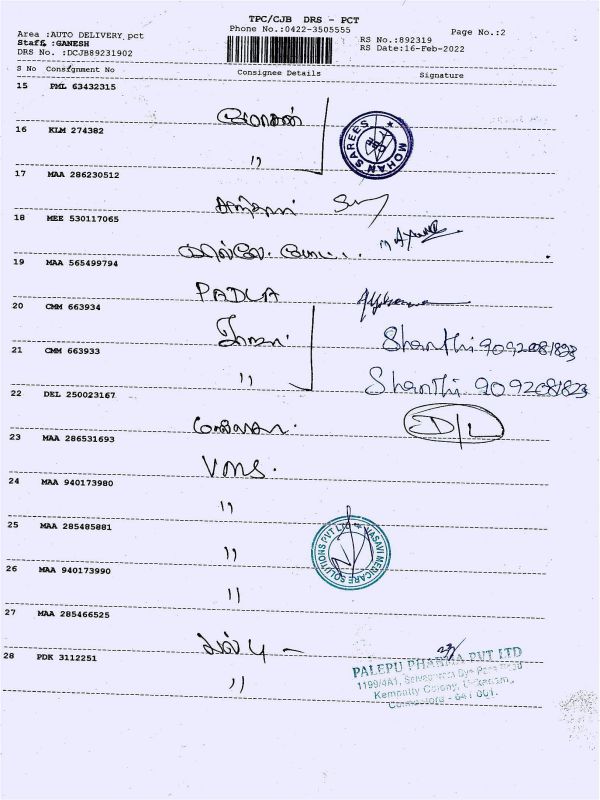 TPC/CJB DRS - PCT
Phone No.:0422-3505555
Page No.:2
Area :AUTO DELIVERY pct
Staff :GANESH
RS No.:892319
DRS No. :DCJB89231902
RS Date:16-Feb-2022
S No Consignment No Consignee Details Signature
15 PML 63432315
16 KLM 274382
MOHAN SAREES
"
17 MAA 286230512
18 MEE 530117065
19 MAA 565499794
PADLA
20 CMM 663934
Shanthi 9092081823
21 CMM 663933
" Shanthi 9092081823
22 DEL 250023167
D/L
23 MAA 286531693
VMS.
24 MAA 940173980
"
25 MAA 285485881
VASAVI MEDICARE SOLUTIONS PVT LTD
"
26 MAA 940173990
"
27 MAA 285466525
28 PDK 3112251
PALEPU PHARMA PVT LTD
"
1199/4A1,
Colony,
Coimbatore - 641 001.